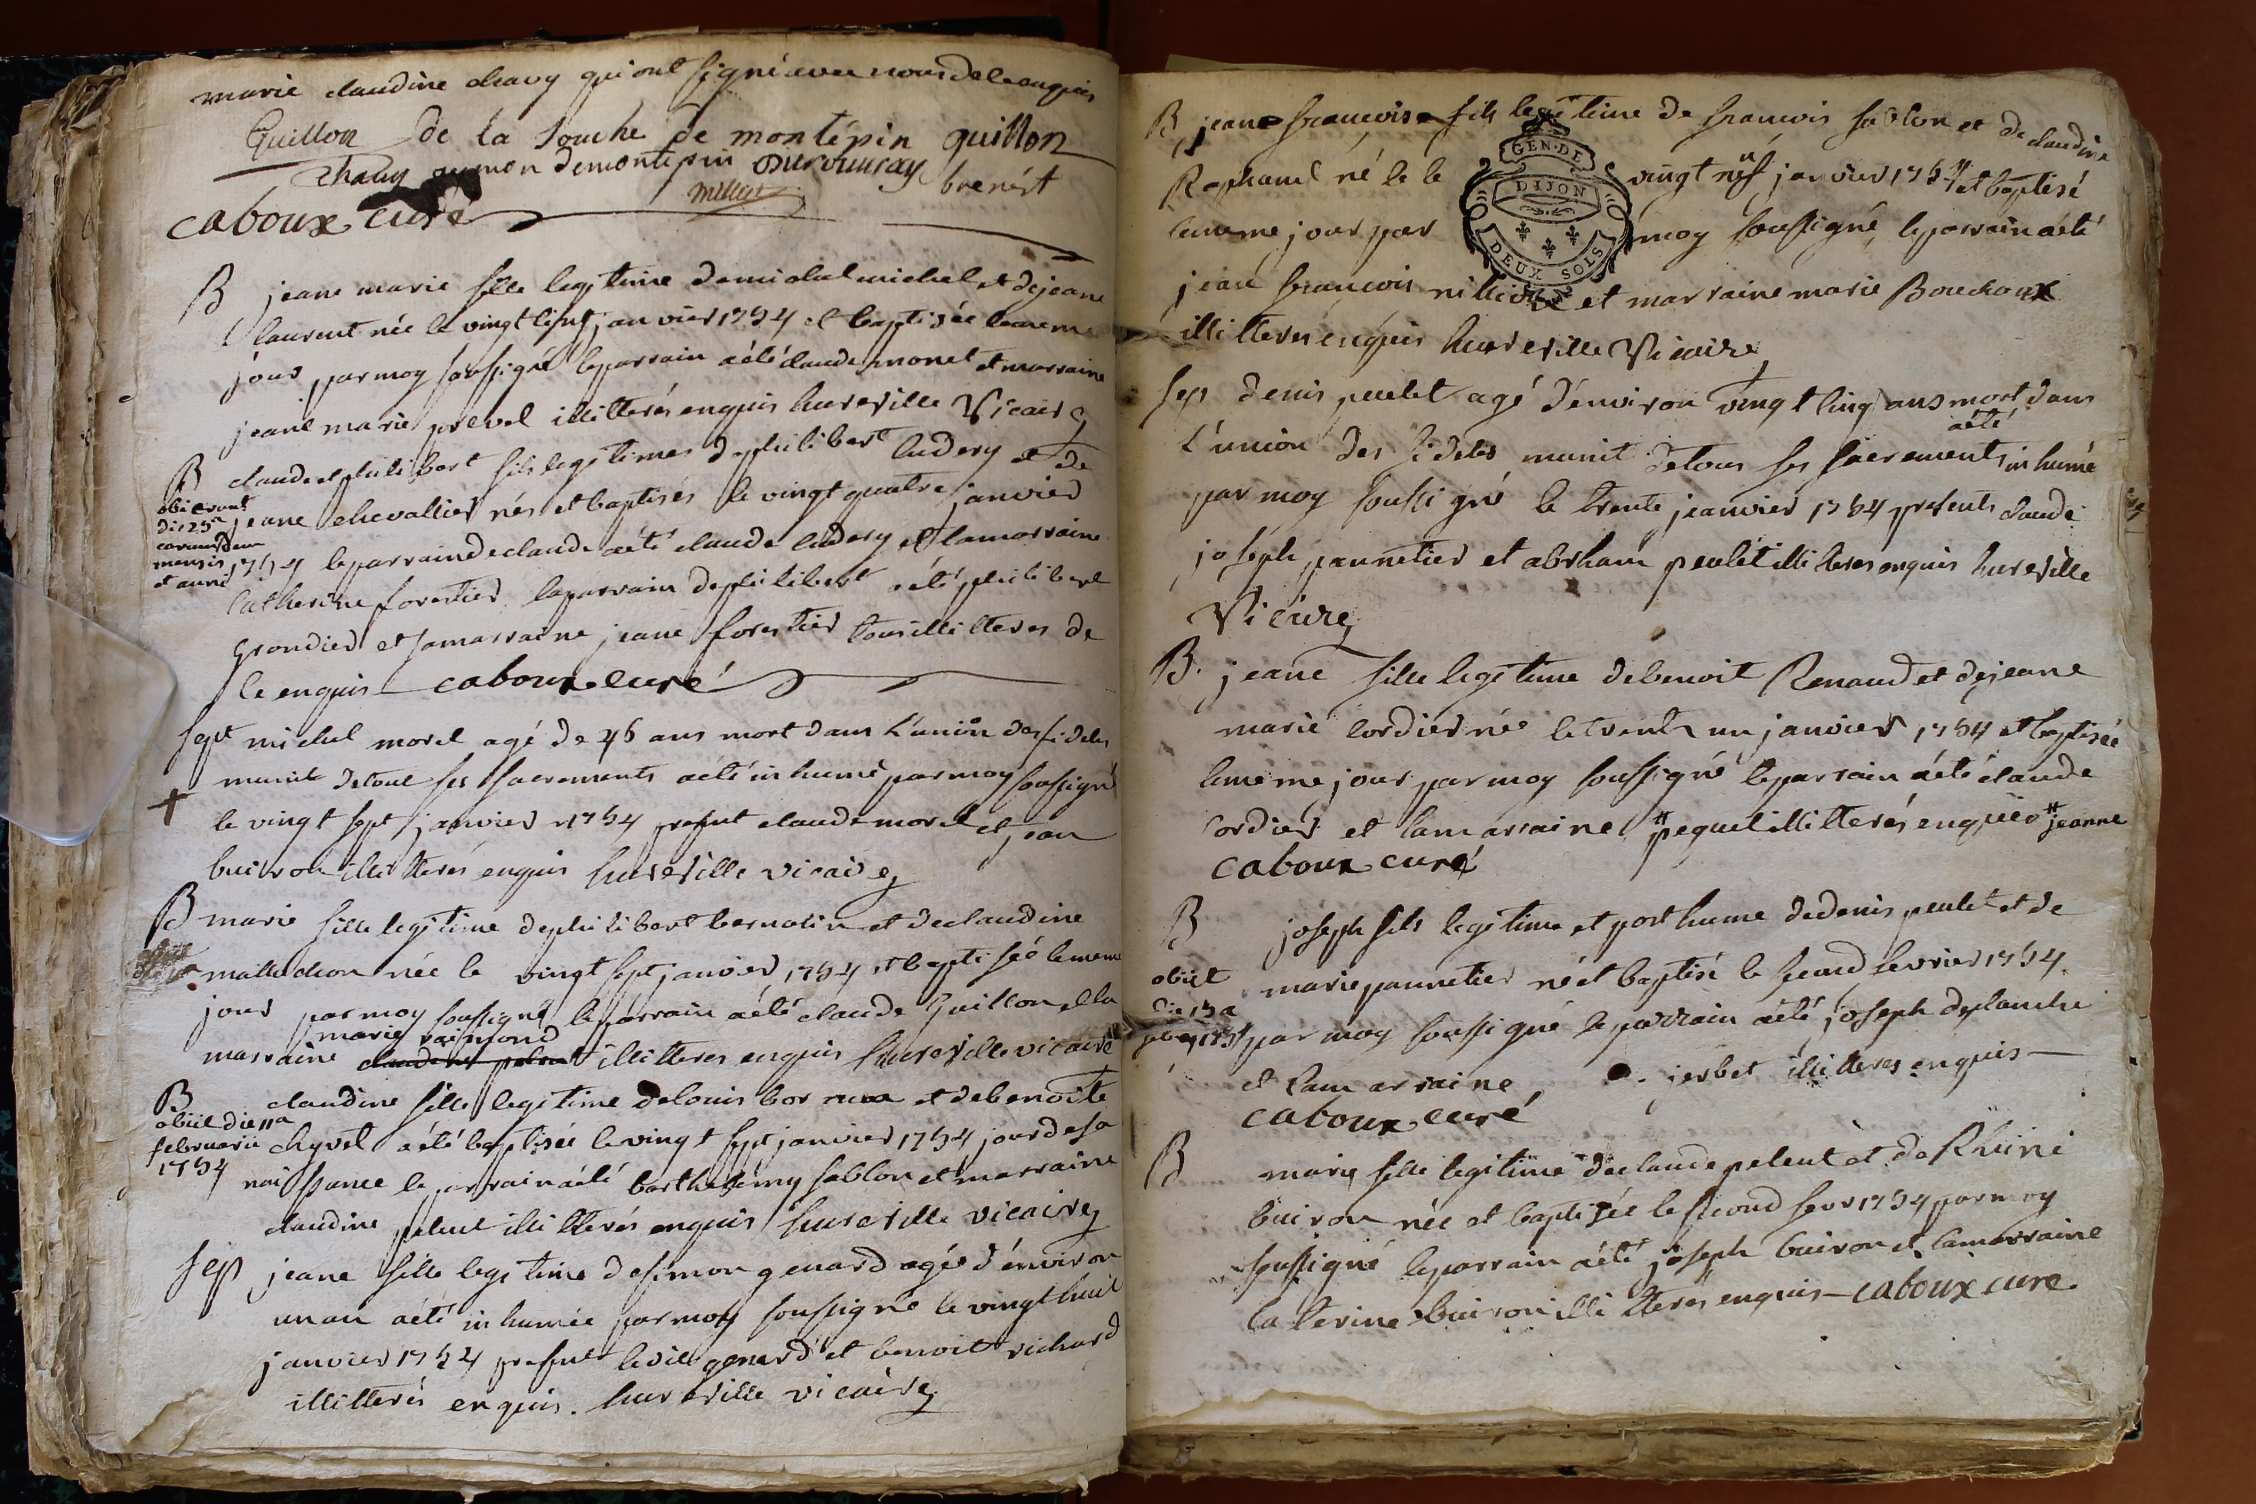 marie claudine chavy qui ont signé avec nous de ce enquis
Guillon de la Souche de montépin guillon
Chavy aymon demontepin Durouussay
millet brenést
caboux curé
B jeane marie fille legitime de michel michel et de jeane
laurent née le vingt sept janvier 1754 et baptisée le meme
jour par moy soussigné le parrain a été claude monet et marraine
jeane marie prevel illitterés enquis hureville Vicaire
B claude et philibert fils legitimes de philibert ludery et de
obierunt
die 25a
mensis
et anni
jeane chevallier nés et baptisés le vingt quatre janvier
1754 le parrain de claude a été claude ludery et la marraine
Catherine forestier le parrain de philibert a été philibert
grondier et sa marraine jeane forestier tous illitteres de
ce enquis caboux curé
sept michel morel agé de 46 ans mort dans l'union des fideles
munit de tout ses sacrements a été inhumé par moy soussigné
le vingt sept janvier 1754 present claude morel et jean
buiron illitterés enquis hureville vicaire
B marie fille legitime de philibert bernolin et de claudine
mathechon née le vingt sept janvier 1754 et baptisée le meme
jour par moy soussigné le parrain a été claude Guillon et la
marie raimond
marraine illitteres enquis hureville vicaire
B claudine fille legitime de louis borrux et de benoite
obiit die 11a
februarii
1754
chyvet a été baptisée le vingt sept janvier 1754 jour de sa
naissance le parrain a été barthelemy sablon et marraine
claudine peleut illitterés enquis hureville vicaire
sep jeane fille legitime de simon genard agée d'environ
un an a été inhumée par moy soussigné le vingt huit
janvier 1754 present ledit genard et benoit richard
illitterés enquis. hureville vicaire
B jean françois fils legitime de francois sablon et de claudine
GEN·DE
DIJON
DEUX SOLS
Raphanel né le le vingt nëf janvier 1754 et baptisé
le meme jour par moy soussigné, le parrain a été
jean françois nillion et marraine marie Bouchoux
illitterés enquis hureville Vicaire
sep denis peulet agé d'environ vingt cinq ans mort dans
a été
l'union des fideles munit de tous ses sacrements inhumé
par moy soussigné le trente jeanvier 1754 presents claude
joseph pannetier et abrham peulét illiteres enquis hureville
Vicaire
B. jeane fille legitime de benoit Renaud et de jeane
marie cordier née le trente un janvier 1754 et baptisée
le meme jour par moy soussigné le parrain a été claude
cordier et la marraine # pequet illitterés enquis # jeanne
caboux curé
B joseph fils legitime et posthume de denis peulet et de
obiit
die 13a
marie pannetier né et baptisé le second fevrier 1754
par moy soussigné le parrain a été joseph deplanche
et la marraine jerbet illitteres enquis
caboux curé
B marie fille legitime de claude peleut et de Rheine
buiron née et baptisée le second fevr 1754 par moy
soussigné le parrain a été joseph buiron et la marraine
Caterine buiron illitterés enquis caboux cure